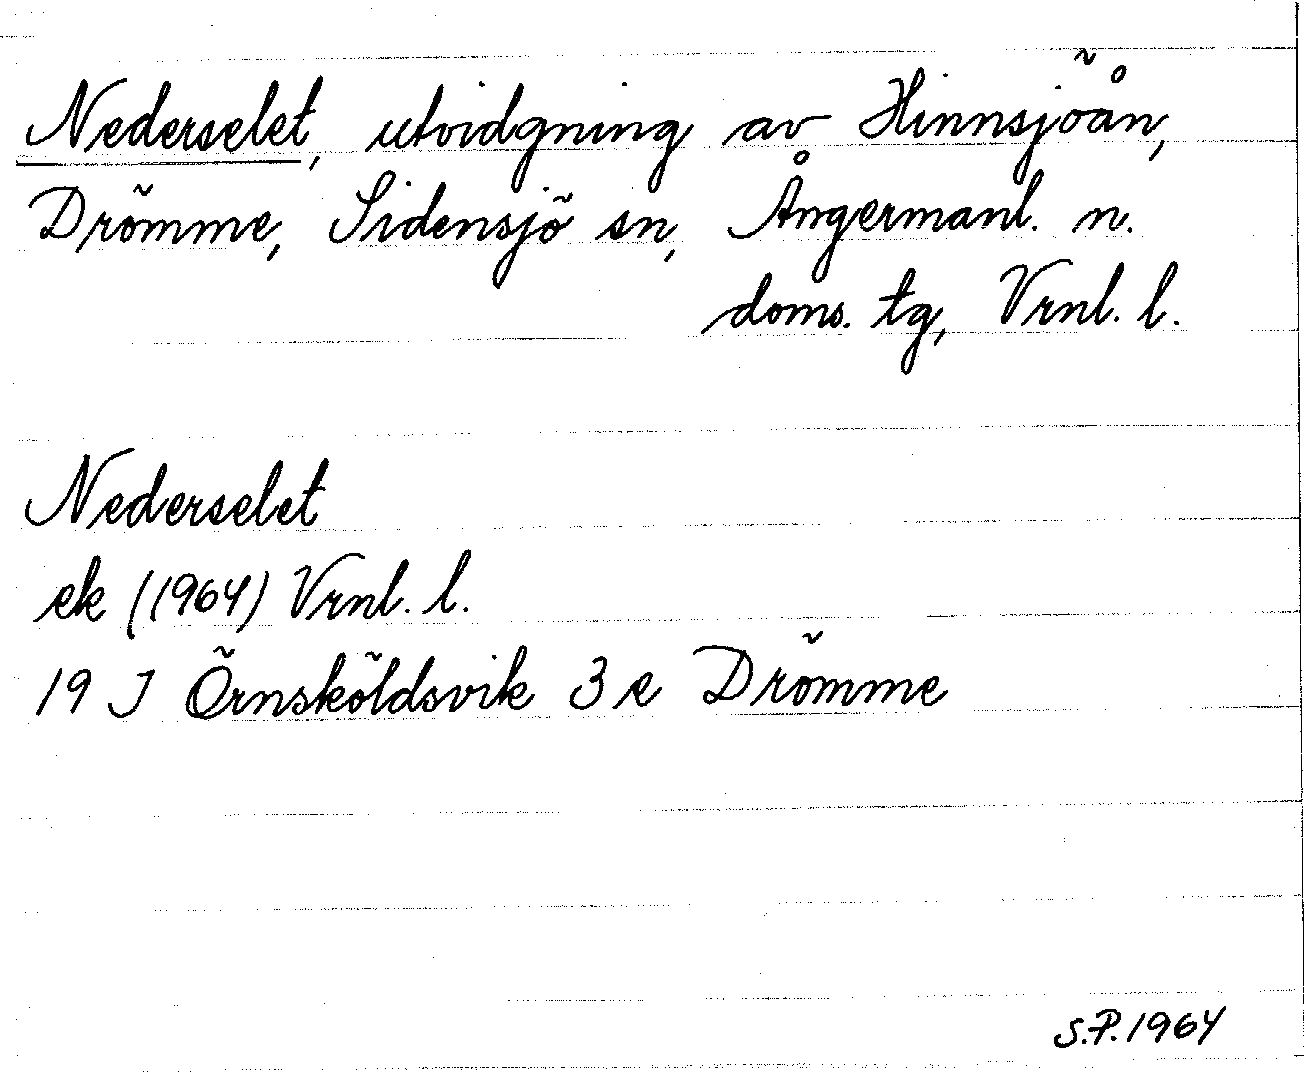 Nederselet, utvidgning av Hinnsjöån,
Drömme, Sidensjö sn, Ångermanl. n.
doms. tg, Vrnl. l.
Nederselet
ek (1964) Vrnl. l.
19 J Örnsköldsvik 3 e Drömme
S.P. 1964